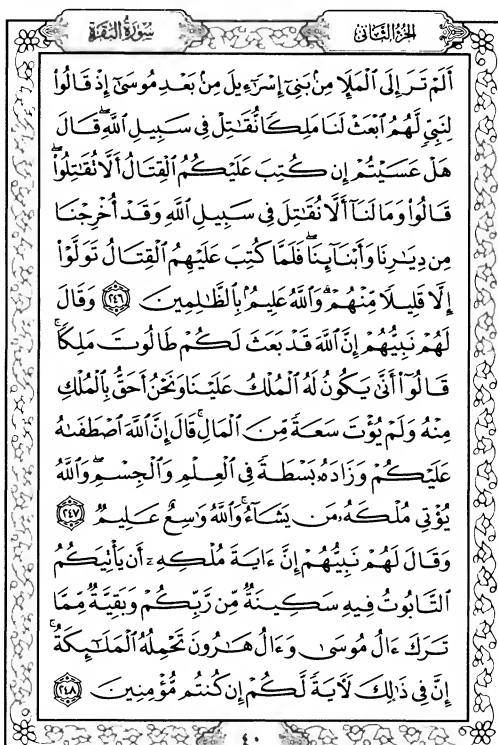 سُورَةُ البَقَرَة
الجُزْءُ الثَّانِي
أَلَمْ تَرَ إِلَى ٱلْمَلَإِ مِنۢ بَنِىٓ إِسْرَٰٓءِيلَ مِنۢ بَعْدِ مُوسَىٰٓ إِذْ قَالُوا۟
لِنَبِىٍّ لَّهُمُ ٱبْعَثْ لَنَا مَلِكًا نُّقَٰتِلْ فِى سَبِيلِ ٱللَّهِ ۖ قَالَ
هَلْ عَسَيْتُمْ إِن كُتِبَ عَلَيْكُمُ ٱلْقِتَالُ أَلَّا تُقَٰتِلُوا۟ ۖ
قَالُوا۟ وَمَا لَنَآ أَلَّا نُقَٰتِلَ فِى سَبِيلِ ٱللَّهِ وَقَدْ أُخْرِجْنَا
مِن دِيَٰرِنَا وَأَبْنَآئِنَا ۖ فَلَمَّا كُتِبَ عَلَيْهِمُ ٱلْقِتَالُ تَوَلَّوْا۟
إِلَّا قَلِيلًا مِّنْهُمْ ۗ وَٱللَّهُ عَلِيمٌۢ بِٱلظَّٰلِمِينَ ٢٤٦ وَقَالَ
لَهُمْ نَبِيُّهُمْ إِنَّ ٱللَّهَ قَدْ بَعَثَ لَكُمْ طَالُوتَ مَلِكًا ۚ
قَالُوٓا۟ أَنَّىٰ يَكُونُ لَهُ ٱلْمُلْكُ عَلَيْنَا وَنَحْنُ أَحَقُّ بِٱلْمُلْكِ
مِنْهُ وَلَمْ يُؤْتَ سَعَةً مِّنَ ٱلْمَالِ ۚ قَالَ إِنَّ ٱللَّهَ ٱصْطَفَىٰهُ
عَلَيْكُمْ وَزَادَهُۥ بَسْطَةً فِى ٱلْعِلْمِ وَٱلْجِسْمِ ۖ وَٱللَّهُ
يُؤْتِى مُلْكَهُۥ مَن يَشَآءُ ۚ وَٱللَّهُ وَٰسِعٌ عَلِيمٌ ٢٤٧
وَقَالَ لَهُمْ نَبِيُّهُمْ إِنَّ ءَايَةَ مُلْكِهِۦٓ أَن يَأْتِيَكُمُ
ٱلتَّابُوتُ فِيهِ سَكِينَةٌ مِّن رَّبِّكُمْ وَبَقِيَّةٌ مِّمَّا
تَرَكَ ءَالُ مُوسَىٰ وَءَالُ هَٰرُونَ تَحْمِلُهُ ٱلْمَلَٰٓئِكَةُ ۚ
إِنَّ فِى ذَٰلِكَ لَءَايَةً لَّكُمْ إِن كُنتُم مُّؤْمِنِينَ ٢٤٨
٤٠